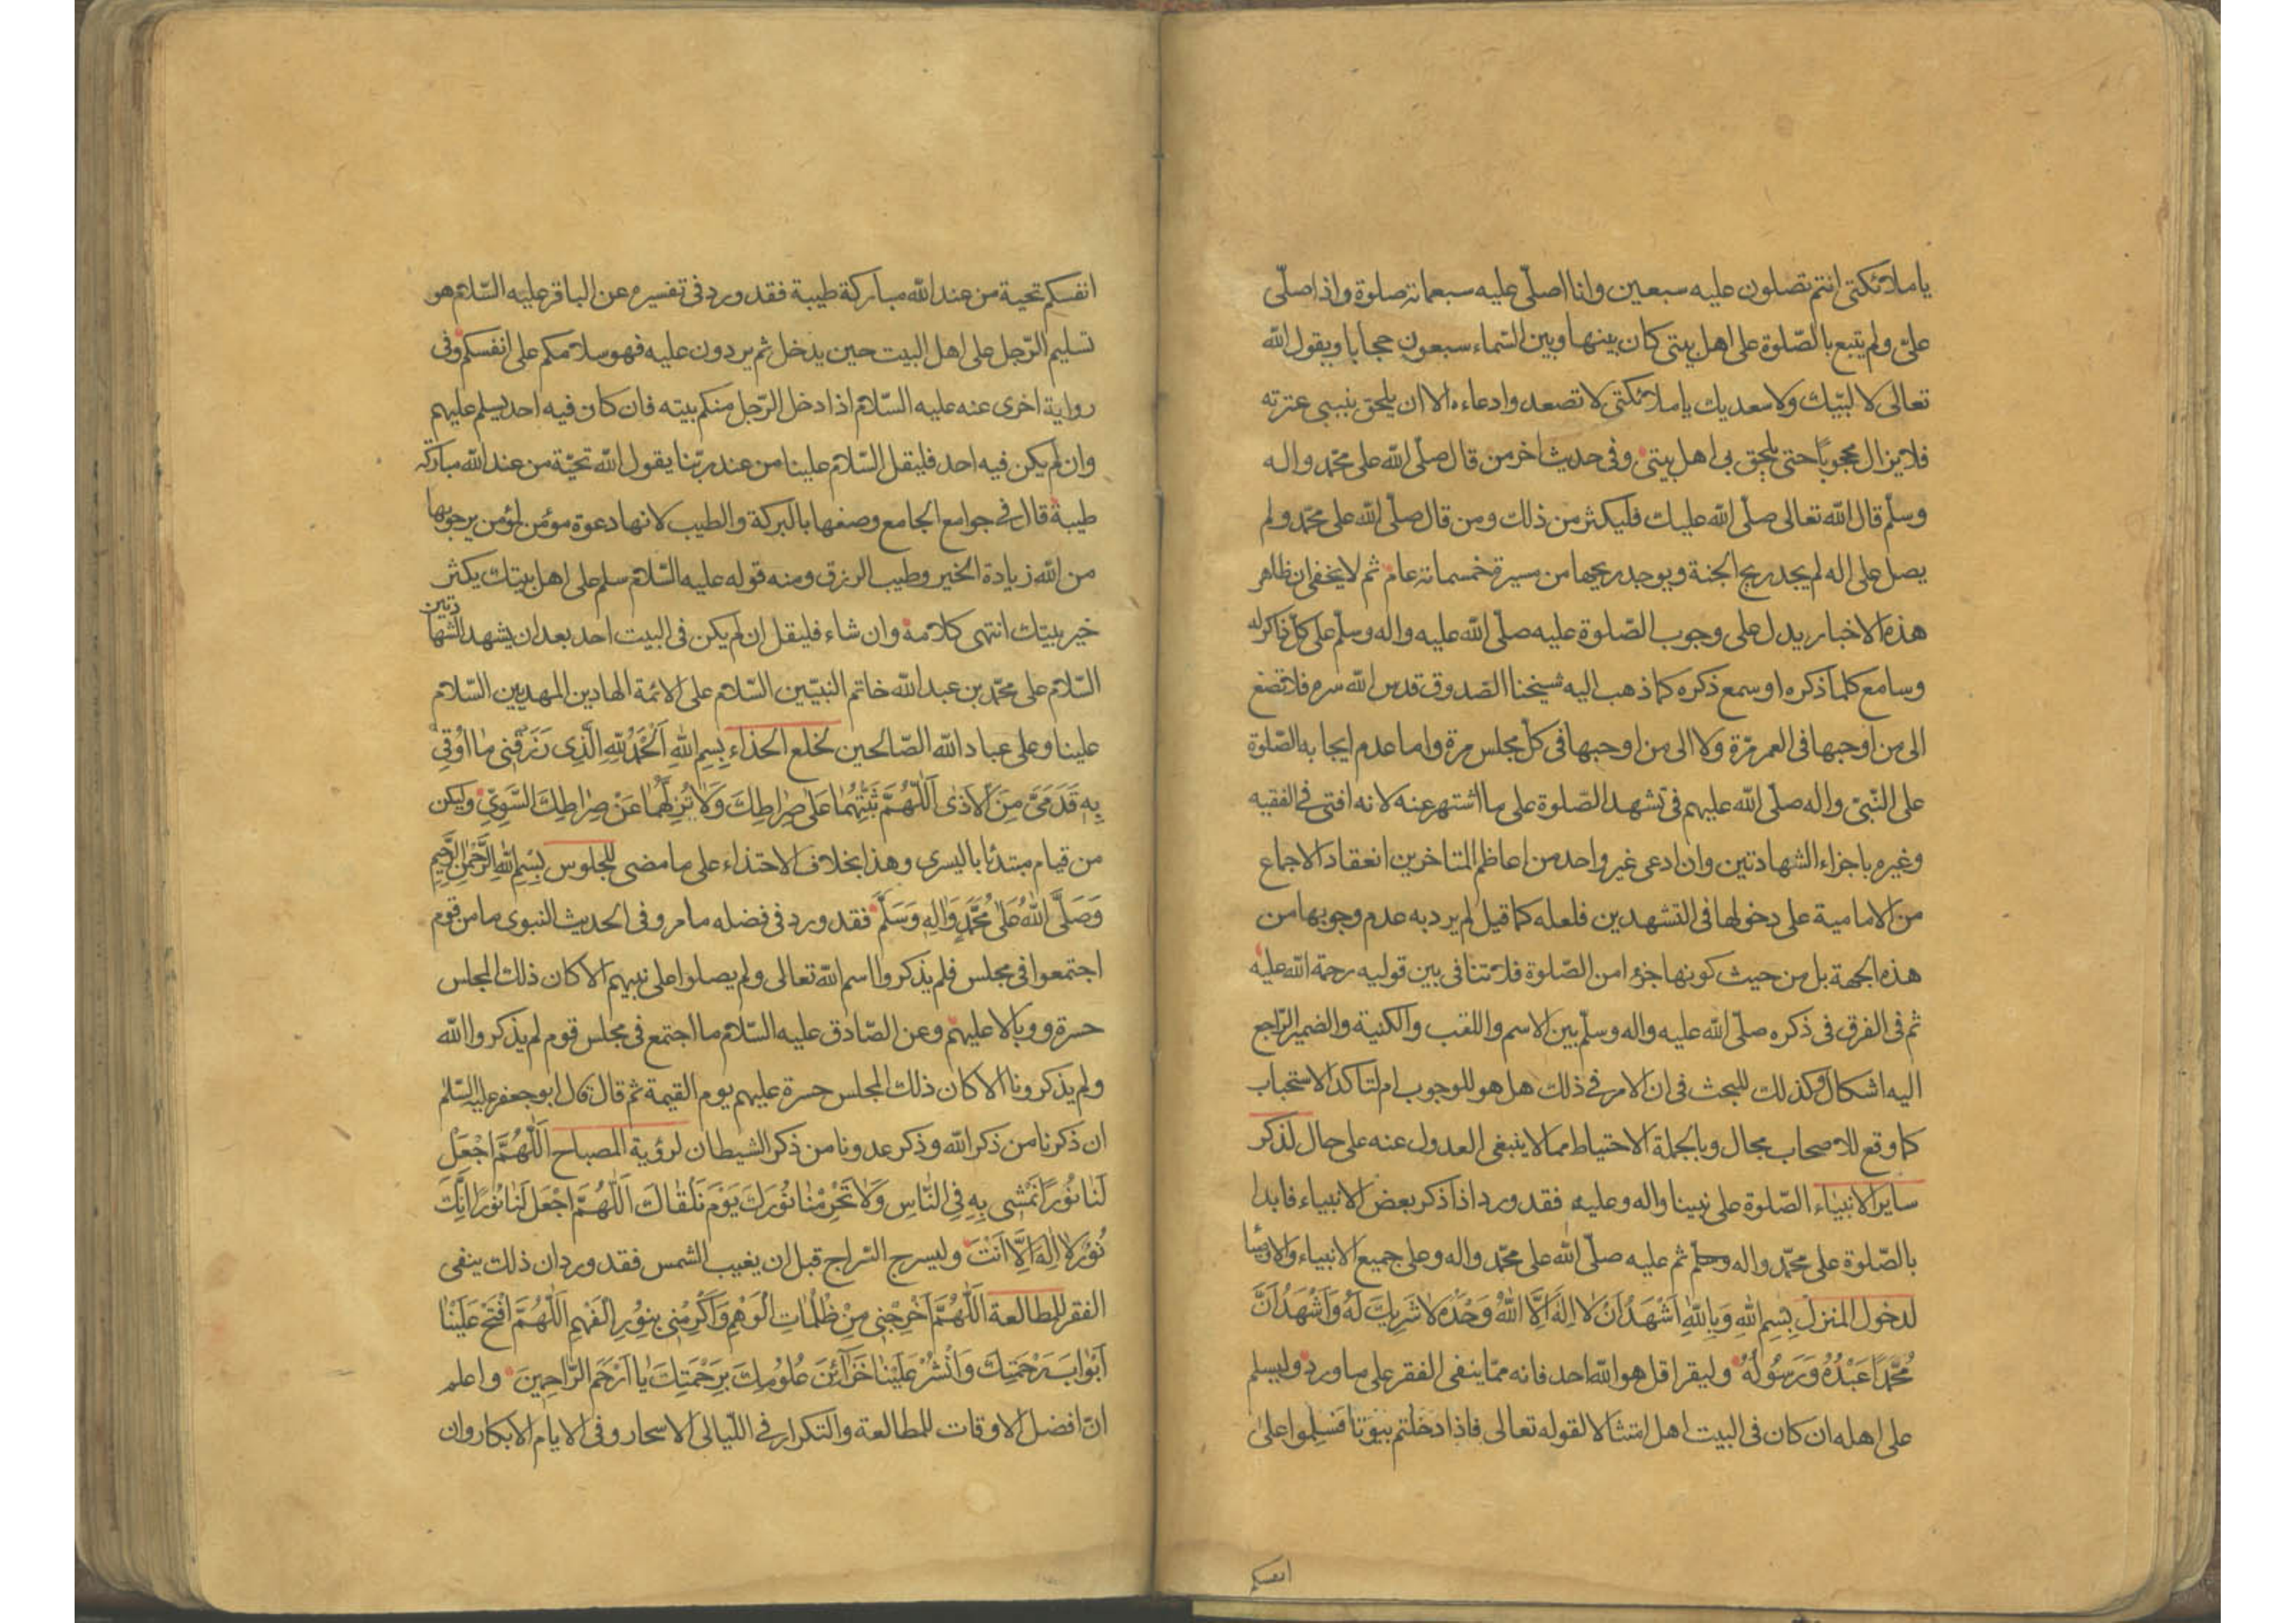 يا ملائكتى انتم تصلون عليه سبعين وانا اصلّى عليه سبعمائة صلوة واذا صلّى
علىّ ولم يتبع بالصّلوة على اهل بيتى كان بينها وبين السّماء سبعون حجابا ويقول الله
تعالى لا لبّيك ولا سعديك يا ملائكتى لا تصعدوا دعاءه الا ان يلحق بنبيى عترته
فلا يزال محجوبًا حتى يلحق بى اهل بيتى وفى حديث اخر من قال صلّى الله على محمّد واله
وسلّم قال الله تعالى صلّى الله عليك فليكثر من ذلك ومن قال صلّى الله على محمّد ولم
يصل على اله لم يجد ريح الجنة ويوجد ريحها من مسيرة خمسمائة عام ثم لا يخفى ان ظاهر
هذه الاخبار يدل على وجوب الصّلوة عليه صلّى الله عليه واله وسلّم على كلّ ذاكر له
وسامع كلما ذكره او سمع ذكره كما ذهب اليه شيخنا الصّدوق قدس الله سره فلا تصغ
الى من اوجبها فى العمر مرّة ولا الى من اوجبها فى كلّ مجلس مرة واما عدم ايجابه الصّلوة
على النّبىّ واله صلّى الله عليهم فى تشهد الصّلوة على ما اشتهر عنه لانه افتى فى الفقيه
وغيره باجزاء الشهادتين وان ادعى غير واحد من اعاظم المتاخرين انعقاد الاجماع
من الامامية على دخولها فى التشهدين فلعله كما قيل لم يرد به عدم وجوبها من
هذه الجهة بل من حيث كونها جزءا من الصّلوة فلا تنافى بين قوليه رحمة الله عليه
ثم فى الفرق فى ذكره صلّى الله عليه واله وسلّم بين الاسم واللقب والكنية والضمير الرّاجع
اليه اشكال وكذلك للبحث فى ان الامر فى ذلك هل هو للوجوب ام لتاكد الاستحباب
كما وقع للاصحاب مجال وبالجملة الاحتياط مما لا ينبغى العدول عنه على حال لذكر
ساير الانبياء الصّلوة على نبينا واله وعليه فقد ورد اذا ذكر بعض الانبياء فابدا
بالصّلوة على محمّد واله وسلم ثم عليه صلّى الله على محمّد واله وعلى جميع الانبياء والاوصياء
لدخول المنزل بِسْمِ اللهِ وَبِاللهِ اَشْهَدُ اَنْ لا اِلهَ اِلَّا اللهُ وَحْدَهُ لا شَرِيكَ لَهُ وَاَشْهَدُ اَنَّ
مُحَمَّدًا عَبْدُهُ وَرَسُولُهُ وليقرا قل هو الله احد فانه ممّا ينفى الفقر على ما ورد وليسلم
على اهله ان كان فى البيت اهل امتثالا لقوله تعالى فاذا دخلتم بيوتا فسلموا على
انفسكم
انفسكم تحية من عند الله مباركة طيبة فقد ورد فى تفسيره عن الباقر عليه السّلام هو
تسليم الرّجل على اهل البيت حين يدخل ثم يردون عليه فهو سلامكم على انفسكم وفى
رواية اخرى عنه عليه السّلام اذا دخل الرّجل منكم بيته فان كان فيه احد يسلم عليهم
وان لم يكن فيه احد فليقل السّلام علينا من عند ربّنا يقول الله تحيّة من عند الله مباركة
طيبة قال فى جوامع الجامع وصفها بالبركة والطيب لانها دعوة مؤمن لمؤمن يرجو بها
من الله زيادة الخير وطيب الرزق ومنه قوله عليه السّلام سلم على اهل بيتك يكثر
خير بيتك انتهى كلامه وان شاء فليقل ان لم يكن فى البيت احد بعد ان يشهد الشهادتين
السّلام على محمّد بن عبد الله خاتم النبيّين السّلام على الائمة الهادين المهديين السّلام
علينا وعلى عباد الله الصّالحين لخلع الحذاء بِسْمِ اللهِ اَلْحَمْدُ لِلّهِ الَّذِى رَزَقَنِى مٰا اُوقِى
بِهِ قَدَمَىَّ مِنَ الْاَذٰى اَللّٰهُمَّ ثَبِّتْهُمٰا عَلٰى صِرٰاطِكَ وَلٰا تُزِلَّهُمٰا عَنْ صِرٰاطِكَ السَّوِىِّ وليكن
من قيام مبتدئا باليسرى وهذا بخلاف الاحتذاء على ما مضى للجلوس بِسْمِ اللهِ الرَّحْمٰنِ الرَّحِيمِ
وَصَلَّى اللهُ عَلٰى مُحَمَّدٍ وَالِهِ وَسَلَّمَ فقد ورد فى فضله ما مر وفى الحديث النبوى ما من قوم
اجتمعوا فى مجلس فلم يذكروا اسم الله تعالى ولم يصلوا على نبيهم الا كان ذلك المجلس
حسرة ووبالا عليهم وعن الصّادق عليه السّلام ما اجتمع فى مجلس قوم لم يذكروا الله
ولم يذكرونا الا كان ذلك المجلس حسرة عليهم يوم القيمة ثم قال قال ابو جعفر عليه السّلم
ان ذكرنا من ذكر الله وذكر عدونا من ذكر الشيطان لرؤية المصباح اَللّٰهُمَّ اجْعَلْ
لَنٰا نُورًا نَمْشِى بِهِ فِى النّٰاسِ وَلٰا تَحْرِمْنٰا نُورَكَ يَوْمَ نَلْقٰاكَ اَللّٰهُمَّ اجْعَلْ لَنٰا نُورًا اِنَّكَ
نُورٌ لٰا اِلٰهَ اِلَّا اَنْتَ وليسرج السّراج قبل ان يغيب الشمس فقد ورد ان ذلك ينفى
الفقر للمطالعة اَللّٰهُمَّ اَخْرِجْنِى مِنْ ظُلُمٰاتِ الْوَهْمِ وَاَكْرِمْنِى بِنُورِ الْفَهْمِ اَللّٰهُمَّ افْتَحْ عَلَيْنٰا
اَبْوٰابَ رَحْمَتِكَ وَانْشُرْ عَلَيْنٰا خَزٰائِنَ عُلُومِكَ بِرَحْمَتِكَ يٰا اَرْحَمَ الرّٰاحِمِينَ واعلم
انّ افضل الاوقات للمطالعة والتكرار فى اللّيالى الاسحار وفى الايام الابكار وان